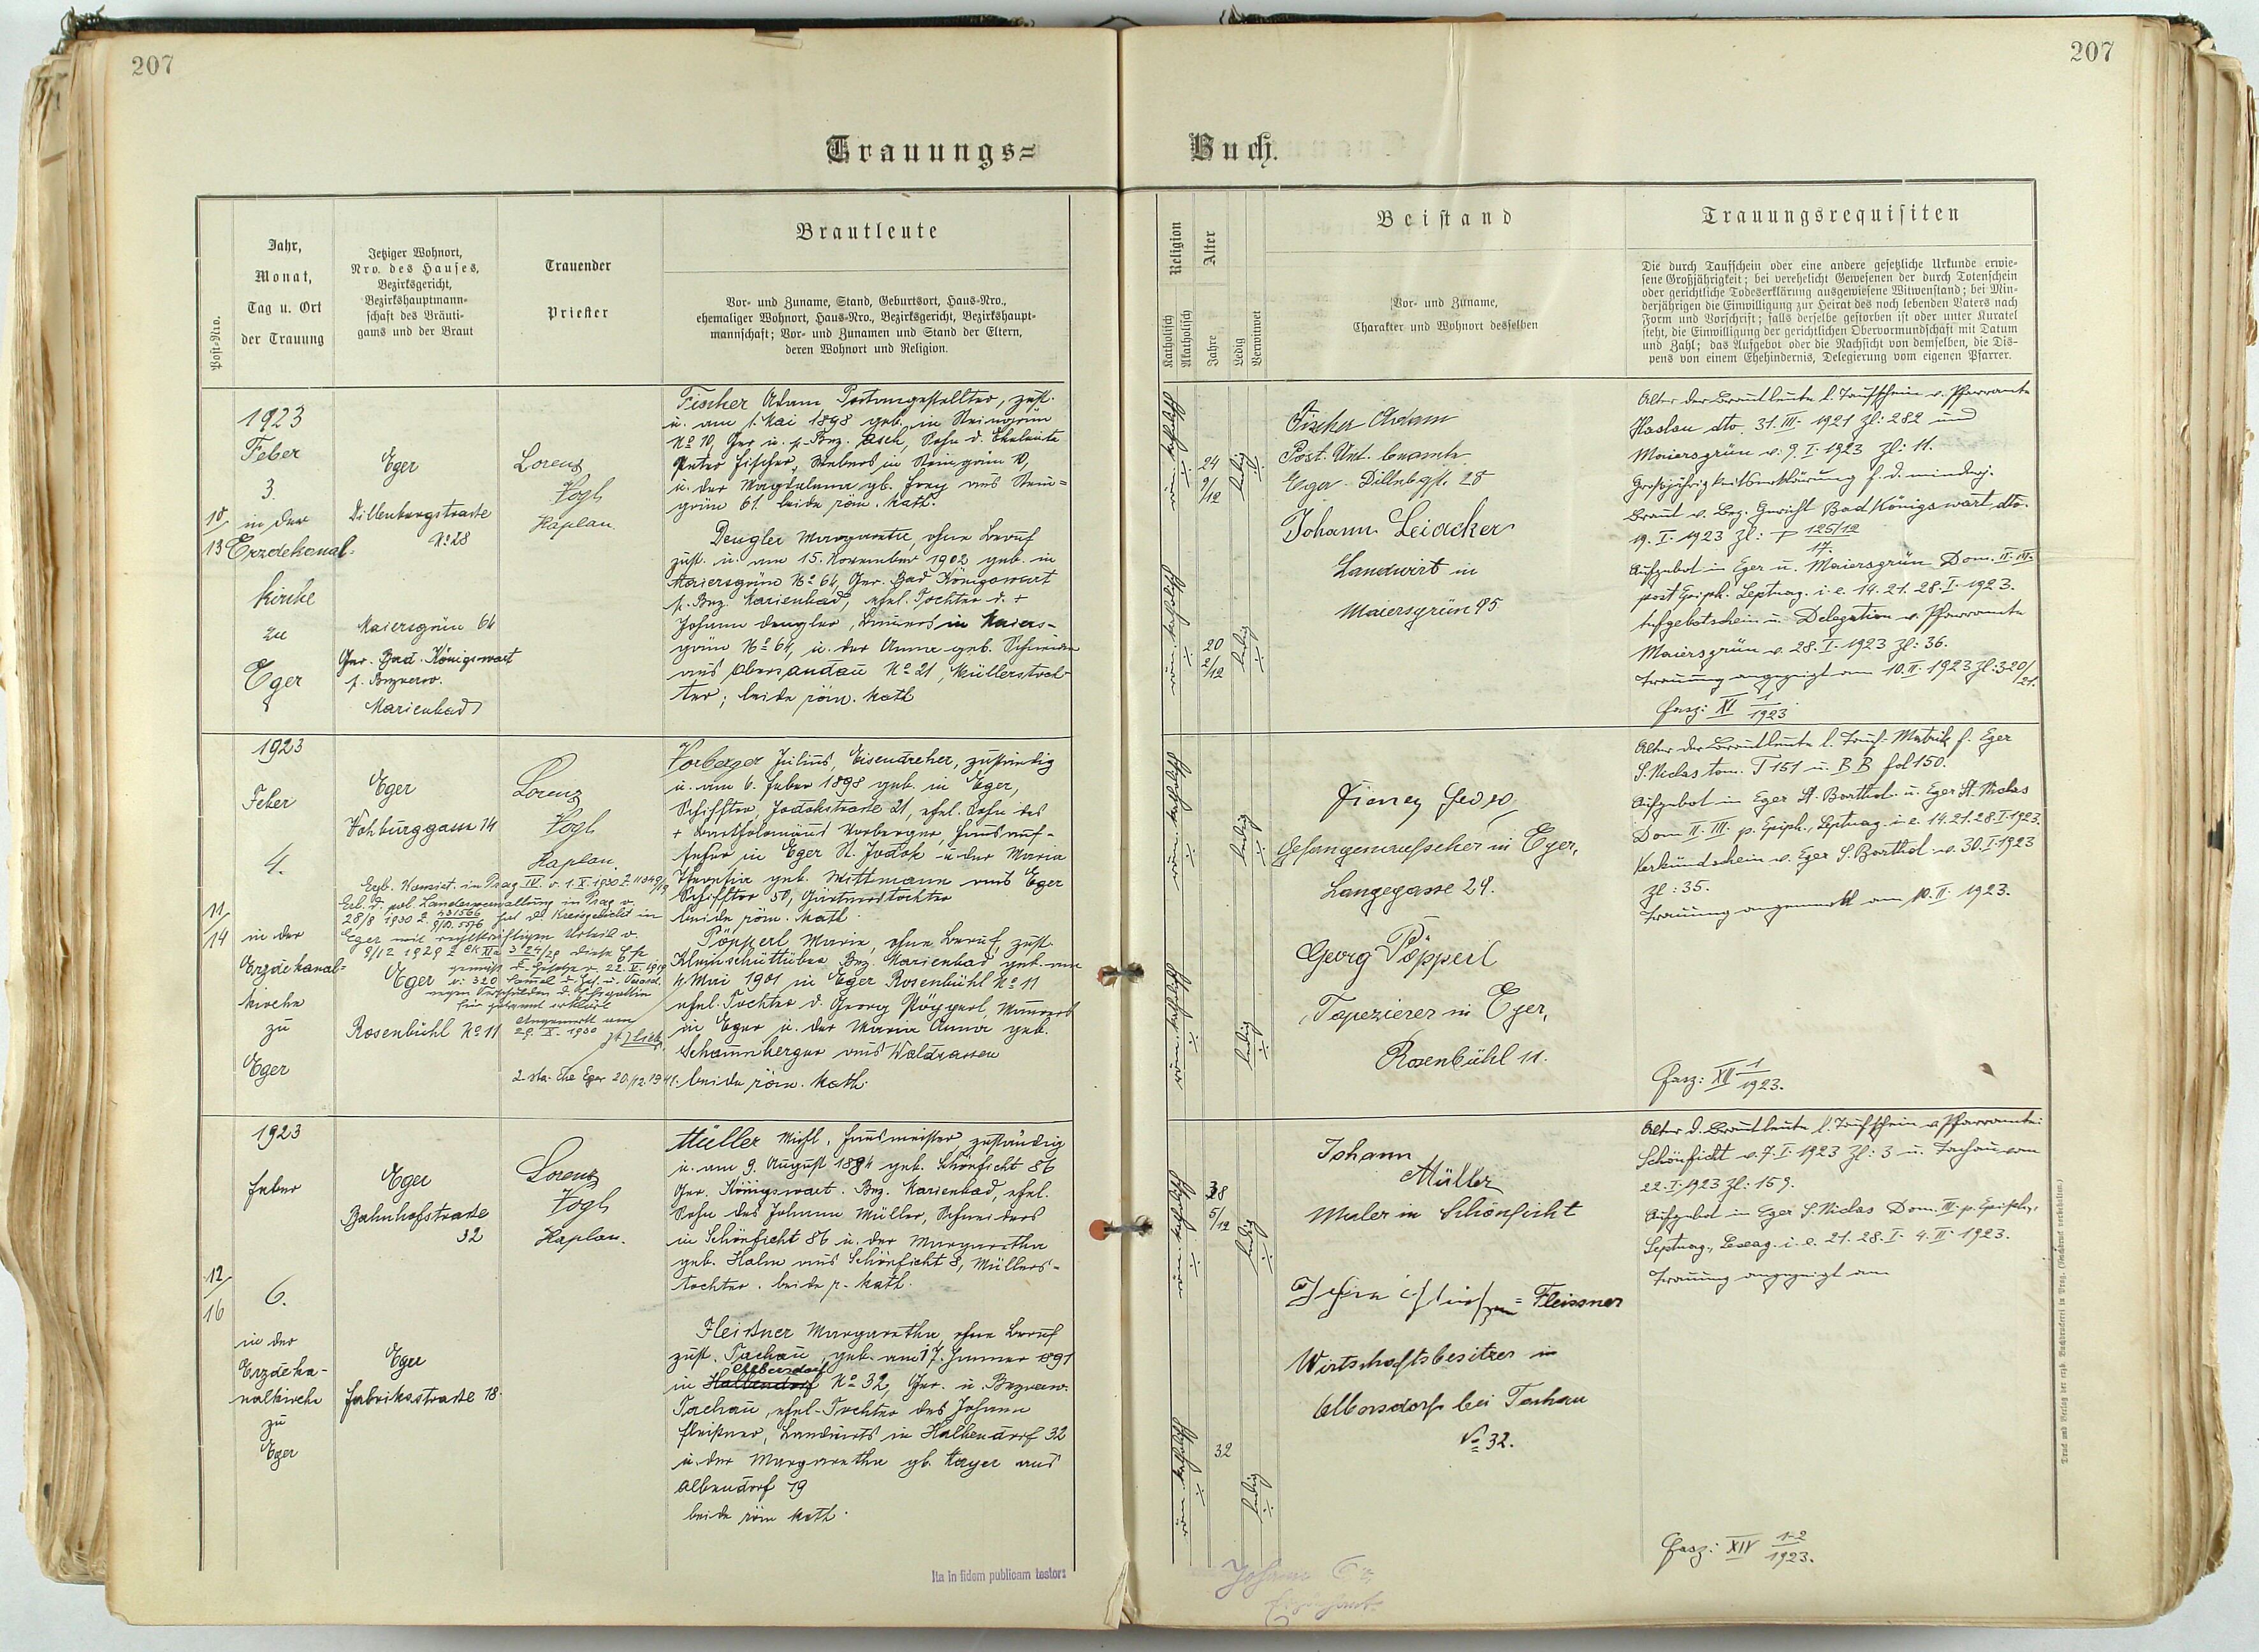 207
207
Trauungs=
Buch.
Post=Nro.
Jahr,
Monat,
Tag u. Ort
der Trauung
Jetziger Wohnort,
Nro. des Hauses,
Bezirksgericht,
Bezirkshauptmann=
schaft des Bräuti=
gams und der Braut
Trauender
Priester
Brautleute
Vor= und Zuname, Stand, Geburtsort, Haus=Nro.,
ehemaliger Wohnort, Haus=Nro., Bezirksgericht, Bezirkshaupt=
mannschaft; Vor= und Zunamen und Stand der Eltern,
deren Wohnort und Religion.
Religion
Katholisch
Akatholisch
Alter
Jahre
Ledig
Verwitwet
Beistand
Vor= und Zuname,
Charakter und Wohnort desselben
Trauungsrequisiten
Die durch Taufschein oder eine andere gesetzliche Urkunde erwie=
sene Großjährigkeit; bei verehelicht Gewesenen der durch Totenschein
oder gerichtliche Todeserklärung ausgewiesene Witwenstand; bei Min=
derjährigen die Einwilligung zur Heirat des noch lebenden Vaters nach
Form und Vorschrift; falls derselbe gestorben ist oder unter Kuratel
steht, die Einwilligung der gerichtlichen Obervormundschaft mit Datum
und Zahl; das Aufgebot oder die Nachsicht von demselben, die Dis=
pens von einem Ehehindernis, Delegierung vom eigenen Pfarrer.
10/
13
1923
Feber
3.
in der
Erzdekanal=
kirche
zu
Eger
Eger
Dillenburgstraße
No 28
Maiersgrün 64
Ger. Bad Königswart
p. Bezverw.
Marienbad
Lorenz
Vogl
Kaplan.
Fischer Adam Postangestellter, zust.
u. am 1. Mai 1898 geb. in Steingrün
No 10, Ger. u. p. Bez. Asch, Sohn d. Eheleute
Peter Fischer, Webers in Steingrün 10,
u. der Magdalena gb. Frey aus Stein=
grün 61. beide röm. kath.
Dengler Margareta, ohne Beruf
zust. u. am 15. November 1902 geb. in
Maiersgrün No 64, Ger. Bad Königswart
p. Bez. Marienbad, ehel. Tochter d. +
Johann Dengler, in Maiers=
grün No 64, u. der Anna geb. Schneider
aus Obersandau No 21, Müllerstoch=
ter; beide röm. kath
röm. katholisch
24
9/12
ledig
röm. katholisch
20
2/12
ledig
Fischer Adam
Post. Unt. beamte
Eger Dillnbgst. 28
Johann Leiacker
Landwirt in
Maiersgrün 95
Alter der Brautleute l. Taufschein v. Pfarramte
Haslau dto. 31. III. 1921 Zl: 282 und
Maiersgrün v. 9. I. 1923 Zl: 11.
Großjährigkeitserklärung f. d. minderj.
Braut v. Bez. Gericht Bad Königswart dto.
19. I. 1923 Zl: P 125/12
17.
Aufgebot in Eger u. Maiersgrün Dom. II. III.
post Epiph. Septuag. i. e. 14. 21. 28. I. 1923.
Aufgebotschein u. Delegation v. Pfarramte
Maiersgrün v. 28. I. 1923 Zl: 36.
Trauung angezeigt am 10. II. 1923 Zl: 320/
21.
Fasz: XI 1/1923
11/
14
1923
Feber
4.
in der
Erzdekanal=
kirche
zu
Eger
Eger
Vohburggasse 14
Eger
Rosenbühl No 11
Lorenz
Vogl
Kaplan.
Erl. d. pol. Landesverwaltung in Prag v.
28/8 1930 hat das Kreisgericht in
Eger mit rechtkräftigem Urteil v.
9/12 1929 diese Ehe
Angemerkt am
2. sta. Ehe Eger 20/12. 1941.
Vorberger Julius, Eisendreher, zuständig
u. am 6. Feber 1898 geb. in Eger,
Schiffter Jodokstraße 21, ehel. Sohn des
+ Bartholomäus Vorberger, Hausauf=
sehers in Eger St. Jodok u. der Maria
Theresia geb. Wittmann aus Eger
Schiffter 50, Gärtnerstochter
beide röm. kath.
Pöpperl Maria, ohne Beruf, zust.
Kleinschüttüber Bez. Marienbad geb. am
4. Mai 1901 in Eger Rosenbühl No 11
ehel. Tochter d. Georg Pöpperl, Maurers
in Eger u. der Maria Anna geb.
Schaumberger aus Waldsassen
beide röm. kath.
röm. katholisch
ledig
röm. katholisch
ledig
Gefangenaufseher in Eger,
Langegasse 29.
Georg Pöpperl
Tapezierer in Eger,
Rosenbühl 11.
Alter der Brautleute l. Tauf-Matrik f. Eger
S. Niclas tom. T 151 u. BB fol 150.
Aufgebot in Eger St. Barthol. u. Eger St. Niclas
Dom II. III. p. Epiph., Septuag. i. e. 14. 21. 28. I. 1923.
Verkündschein v. Eger S. Barthol. v. 30. I. 1923
Zl: 35.
Trauung angemerkt am 10. II. 1923.
Fasz: XII 1/1923.
12/
16
1923
Feber
6.
in der
Erzdeka-
nalkirche
zu
Eger
Eger
Bahnhofstraße
32
Eger
Fabriksstraße 18.
Lorenz
Vogl
Kaplan.
Müller Michl, Hausmeister, zuständig
u. am 9. August 1894 geb. Schönficht 86
Ger. Königswart. Bez. Marienbad, ehel.
Sohn des Johann Müller, Schneiders
in Schönficht 86 u. der Margaretha
geb. Halm aus Schönficht 8, Müllers=
tochter. beide r. kath.
Fleißner Margaretha, ohne Beruf
zust. Tachau, geb. am 17. Jänner 1891
Albersdorf
in Halbendorf No 32, Ger. u. Bezverw.
Tachau, ehel. Tochter des Johann
Fleißner, Landwirts in Halbendorf 32
u. der Margaretha gb. Mayer aus
Albendorf 19
beide röm kath.
röm. katholisch
28
5/12
ledig
röm. katholisch
32
ledig
Johann
Müller
Maler in Schönficht
= Fleissner
Wirtschaftsbesitzer in
Albersdorf bei Tachau
No 32.
Alter d. Brautleute l. Taufschein v. Pfarramte:
Schönficht v. 7. I. 1923 Zl: 3 u. Tachau vom
22. I. 1923 Zl: 159.
Aufgebot in Eger S. Niclas Dom. III. p. Epiph.,
Septuag., Sexag. i. e. 21. 28. I. 4. II. 1923.
Trauung angezeigt am
Fasz: XIV 1-2/1923.
Ita in fidem publicam testor:
Druck und Verlag der erzb. Buchdruckerei in Prag. (Nachdruck verboten.)